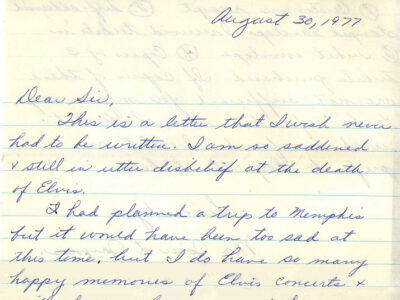 August 30, 1977
Dear Sir,
This is a letter that I wish never
had to be written. I am so saddened
& still in utter disbelief at the death
of Elvis.
I had planned a trip to Memphis
but it would have been too sad at
this time, but I do have so many
happy memories of Elvis concerts &